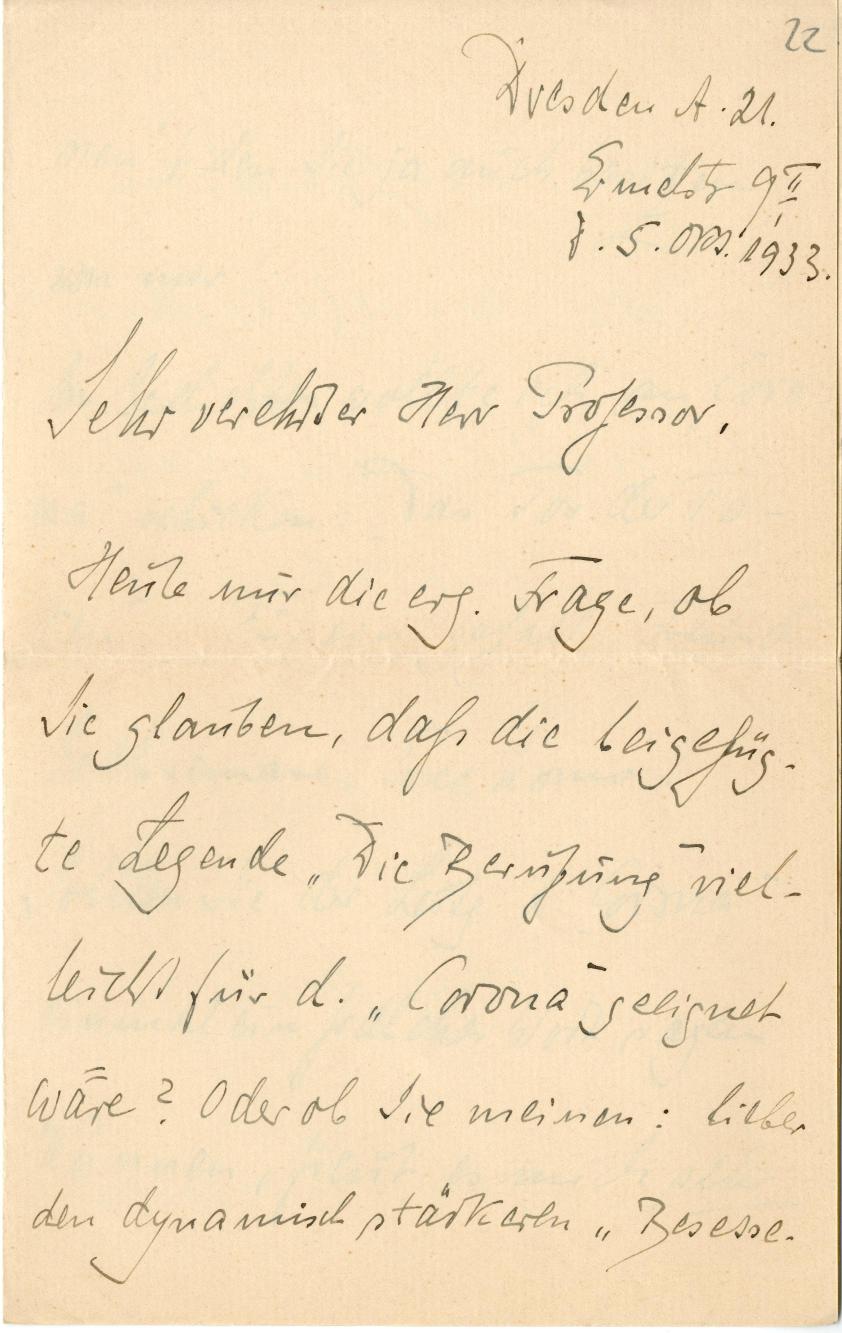 22
Dresden A. 21.
9 II
d. 5. Okt. 1933.
Sehr verehrter Herr Professor,
Heute nur die erg. Frage, ob
Sie glauben, daß die beigefüg-
te Legende „Die Berufung" viel-
leicht für d. „Corona" geeignet
wäre? Oder ob Sie meinen: lieber
den dynamisch stärkeren „Besesse-